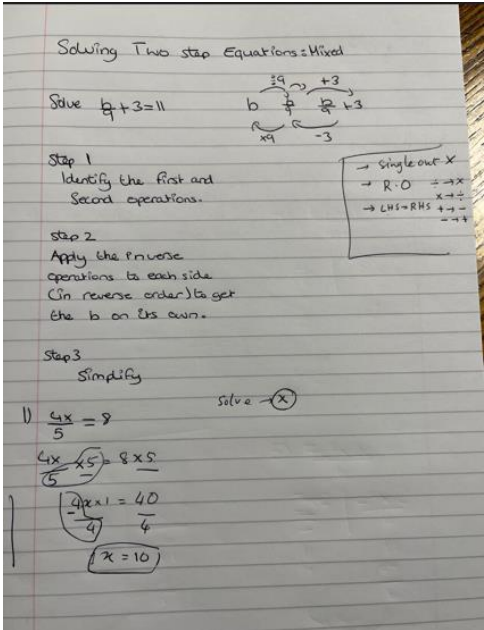 Solving Two step Equations: Mixed
÷9 +3
Solve b/9 + 3 = 11 b b/9 b/9 + 3
×9 -3
Step 1
Identify the first and
Second operations.
→ single out x
→ R.O ÷ → ×
× → ÷
→ LHS = RHS + → -
- → +
step 2
Apply the inverse
operations to each side
(in reverse order) to get
the b on its own.
Step 3
Simplify
Solve → x
1) 4x/5 = 8
4x/5 × 5 = 8 × 5
4x × 1 / 4 = 40 / 4
x = 10